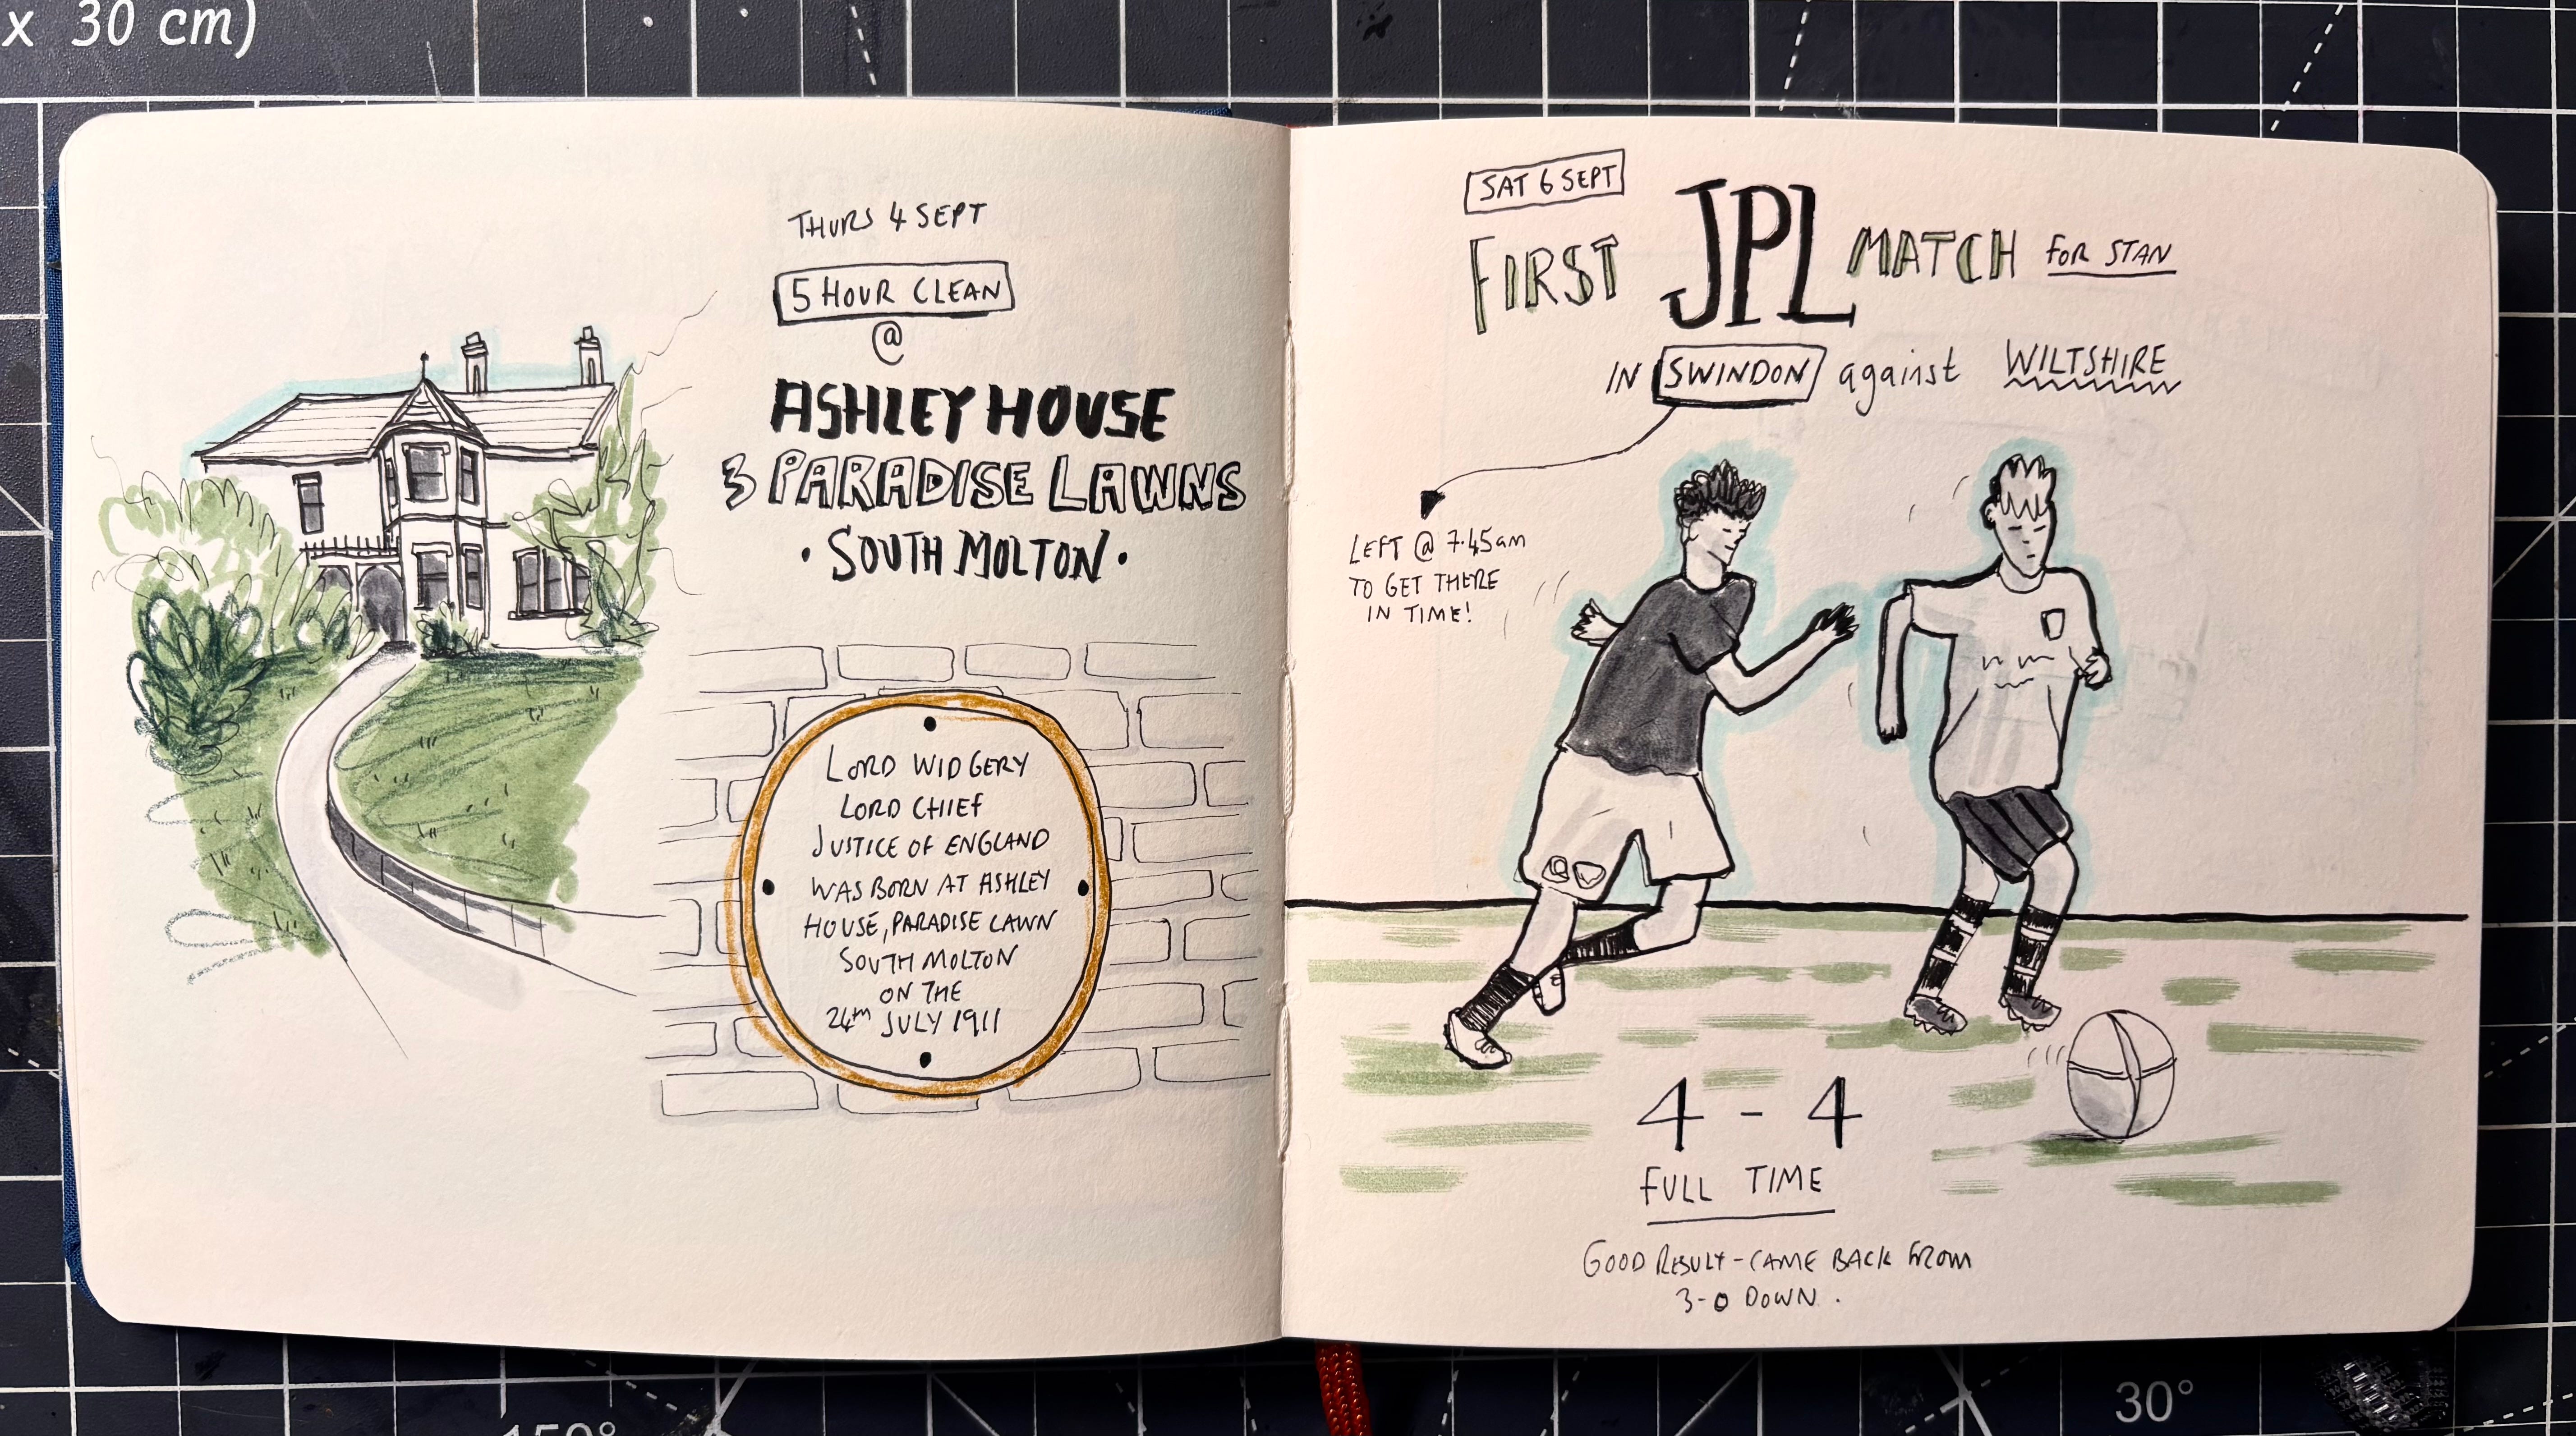 x 30 cm)
THURS 4 SEPT
5 HOUR CLEAN
@
ASHLEY HOUSE
3 PARADISE LAWNS
• SOUTH MOLTON •
LORD WIDGERY
LORD CHIEF
JUSTICE OF ENGLAND
WAS BORN AT ASHLEY
HOUSE, PARADISE LAWN
SOUTH MOLTON
ON THE
24th JULY 1911
SAT 6 SEPT
FIRST JPL MATCH FOR STAN
IN SWINDON against WILTSHIRE
LEFT @ 7.45am
TO GET THERE
IN TIME!
4 - 4
FULL TIME
GOOD RESULT - CAME BACK FROM
3-0 DOWN.
150°
30°